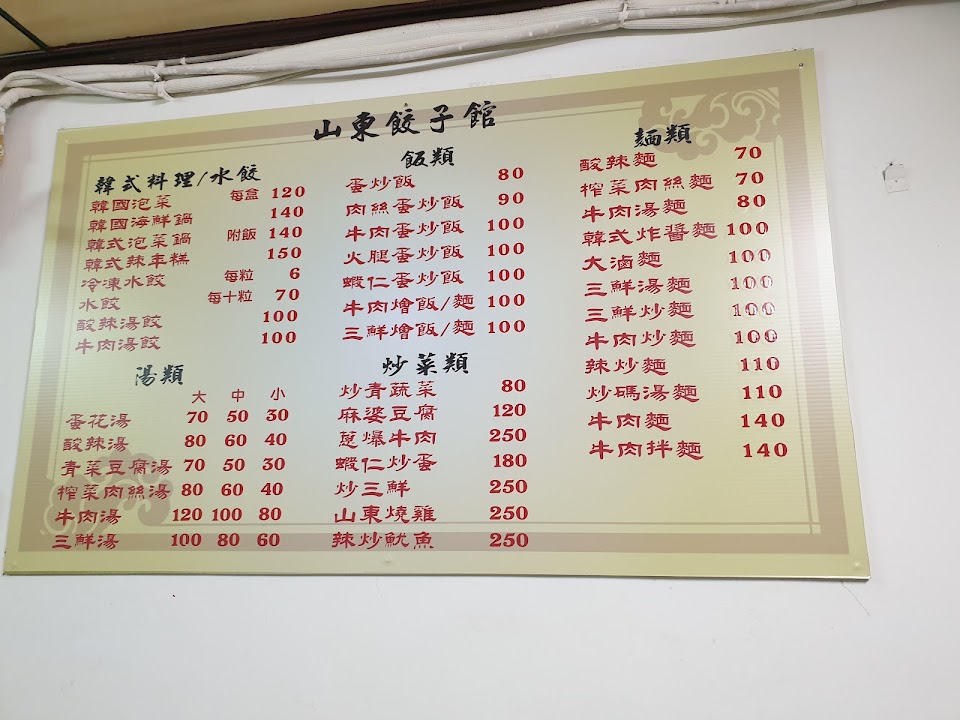 山東餃子館
韓式料理/水餃
韓國泡菜 每盒 120
韓國海鮮鍋 140
韓式泡菜鍋 附飯 140
韓式辣年糕 150
冷凍水餃 每粒 6
水餃 每十粒 70
酸辣湯餃 100
牛肉湯餃 100
湯類
大 中 小
蛋花湯 70 50 30
酸辣湯 80 60 40
青菜豆腐湯 70 50 30
榨菜肉絲湯 80 60 40
牛肉湯 120 100 80
三鮮湯 100 80 60
飯類
蛋炒飯 80
肉絲蛋炒飯 90
牛肉蛋炒飯 100
火腿蛋炒飯 100
蝦仁蛋炒飯 100
牛肉燴飯/麵 100
三鮮燴飯/麵 100
炒菜類
炒青蔬菜 80
麻婆豆腐 120
蔥爆牛肉 250
蝦仁炒蛋 180
炒三鮮 250
山東燒雞 250
辣炒魷魚 250
麵類
酸辣麵 70
榨菜肉絲麵 70
牛肉湯麵 80
韓式炸醬麵 100
大滷麵 100
三鮮湯麵 100
三鮮炒麵 100
牛肉炒麵 100
辣炒麵 110
炒碼湯麵 110
牛肉麵 140
牛肉拌麵 140